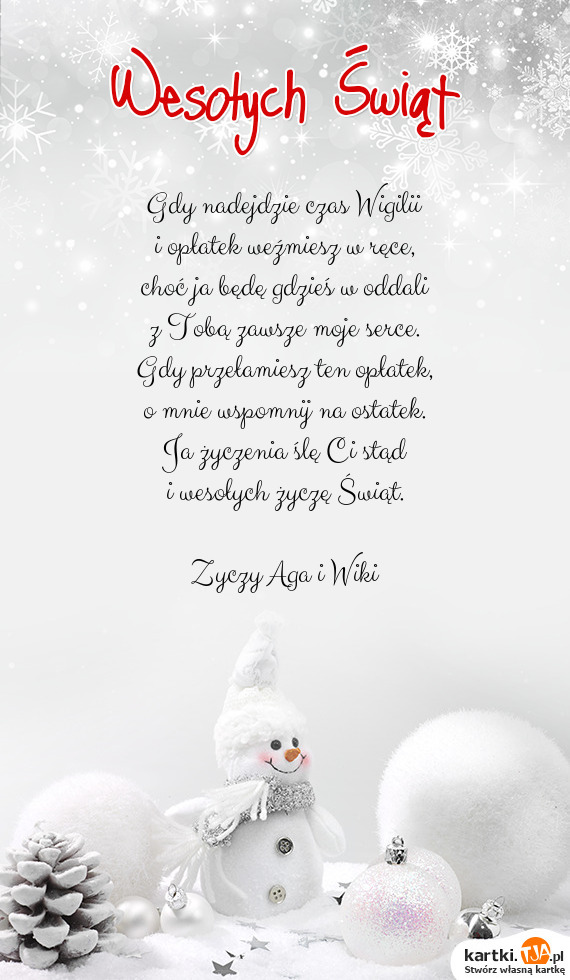 Wesołych Świąt
Gdy nadejdzie czas Wigilii
i opłatek weźmiesz w ręce,
choć ja będę gdzieś w oddali
z Tobą zawsze moje serce.
Gdy przełamiesz ten opłatek,
o mnie wspomnij na ostatek.
Ja życzenia ślę Ci stąd
i wesołych życzę Świąt.
Zyczy Aga i Wiki
kartki.TJA.pl
Stwórz własną kartkę